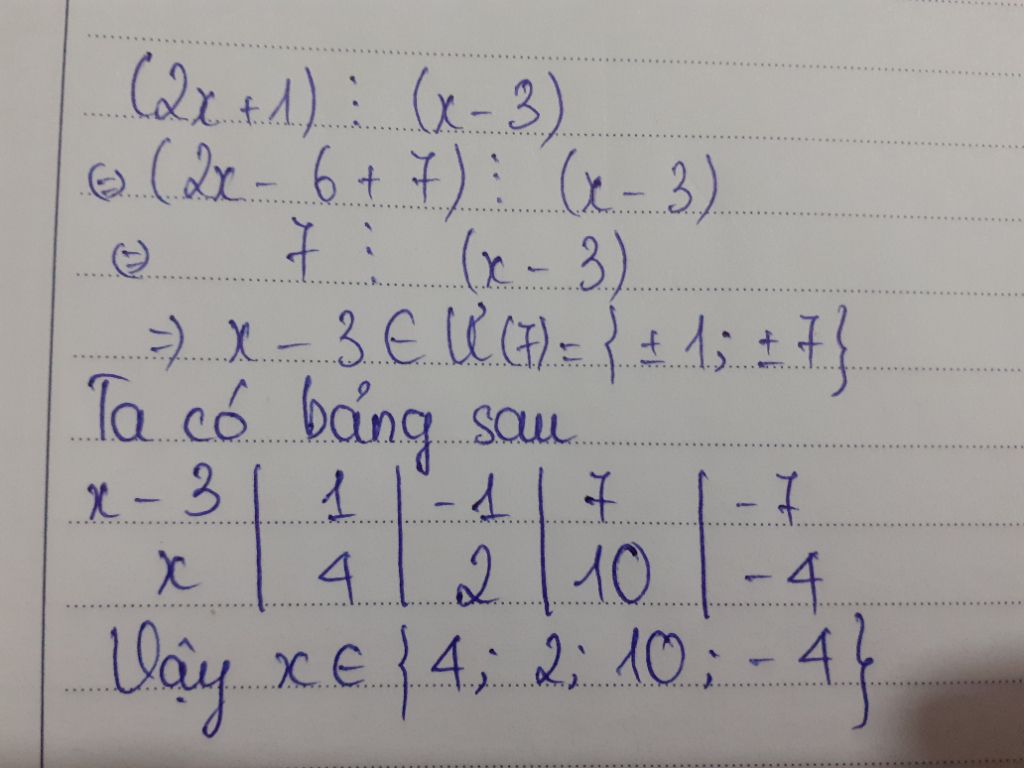 (2x+1) ⋮ (x-3)
⇔ (2x - 6 + 7) ⋮ (x - 3)
⇔ 7 ⋮ (x - 3)
⇒ x - 3 ∈ Ư(7) = { ±1; ±7}
Ta có bảng sau
x - 3 | 1 | -1 | 7 | -7
x | 4 | 2 | 10 | -4
Vậy x ∈ {4; 2; 10; -4}